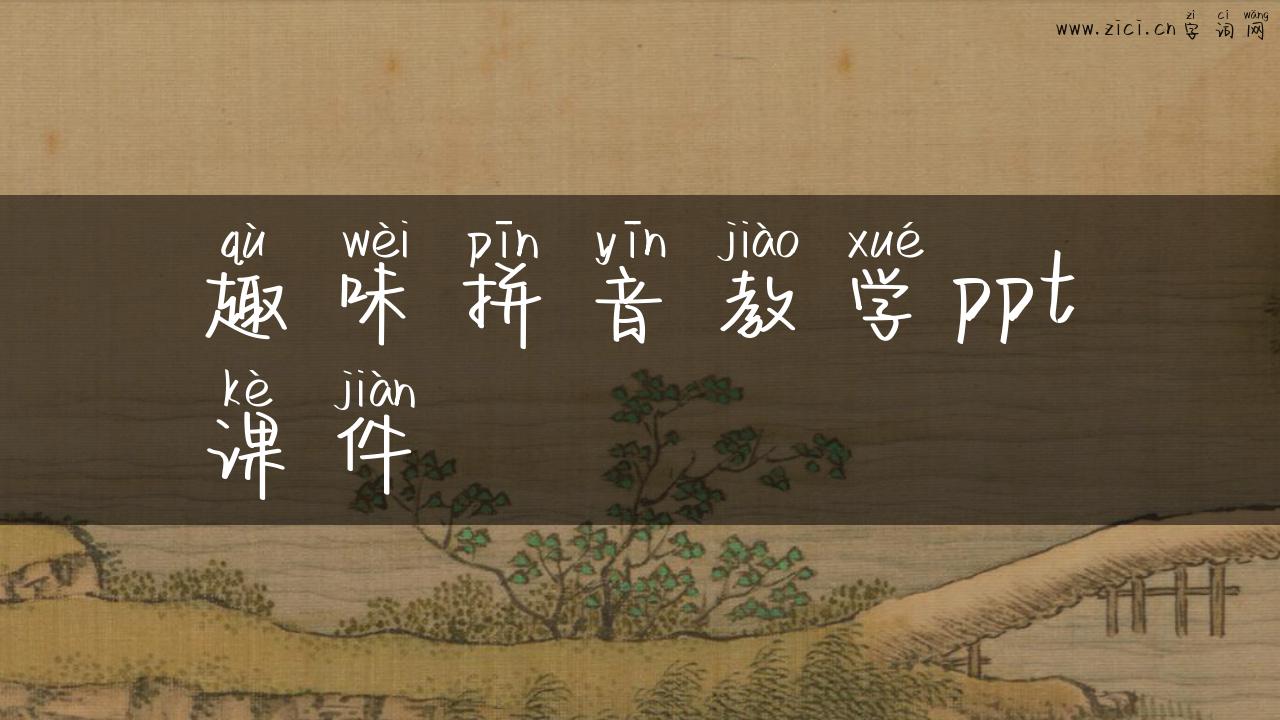 zì cí wǎng
www.zici.cn 字词网
qù wèi pīn yīn jiào xué
趣味拼音教学ppt
kè jiàn
课件